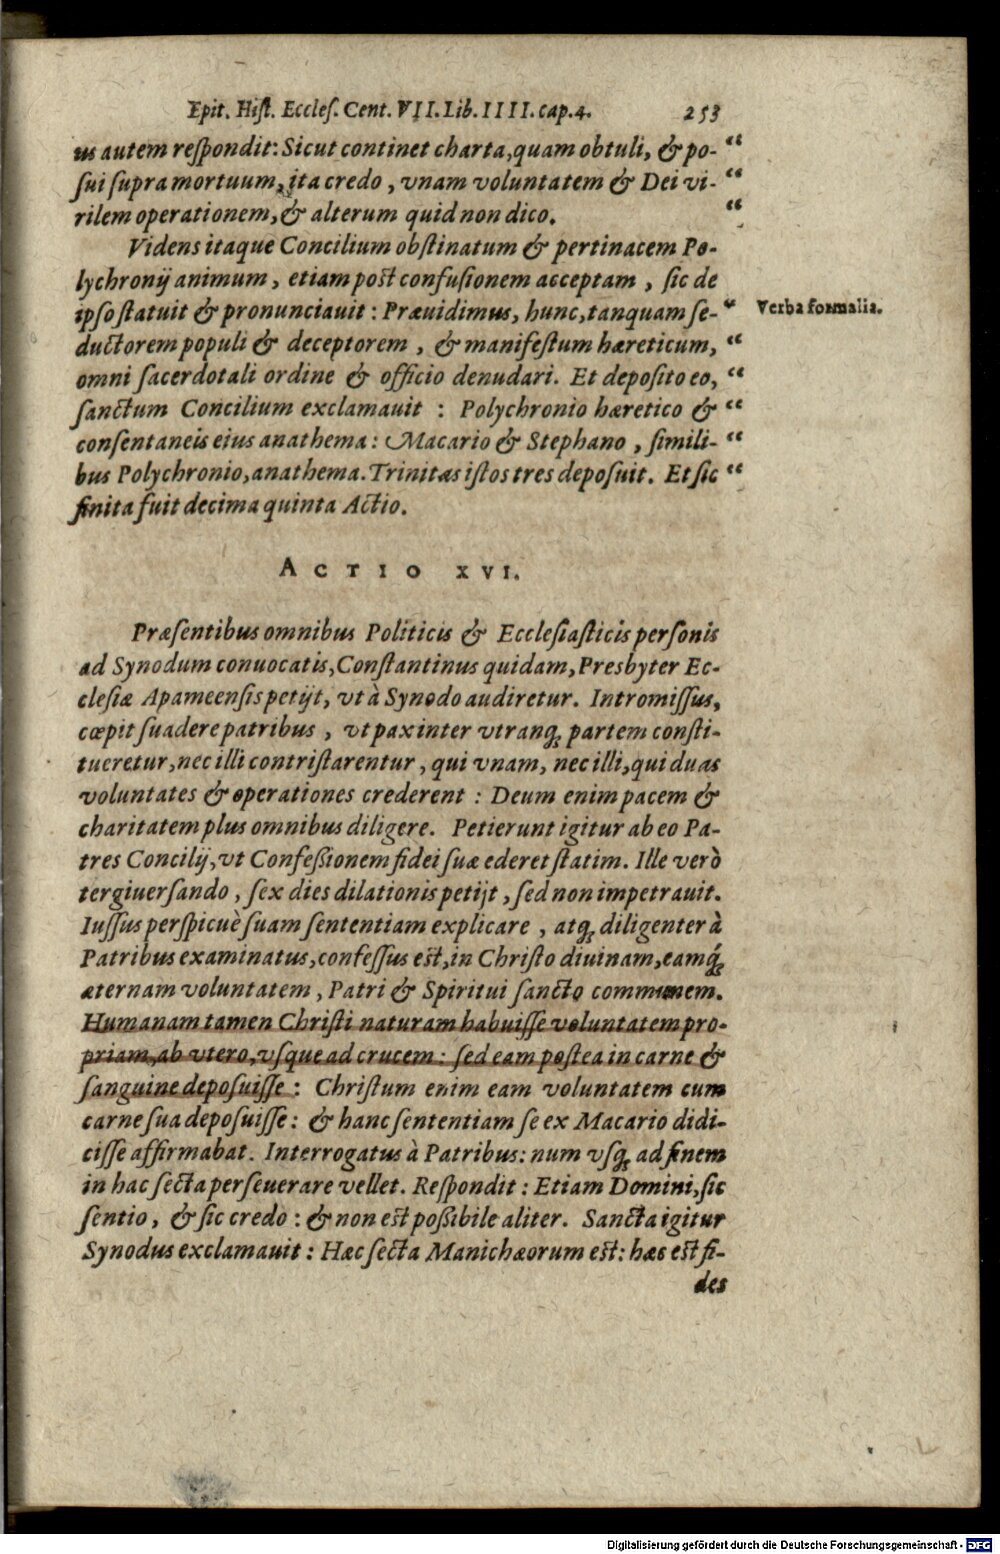 Epit. Hist. Eccles. Cent. VII. Lib. IIII. cap. 4. 253
us autem respondit: Sicut continet charta, quam obtuli, & po- “
sui supra mortuum, ita credo, vnam voluntatem & Dei vi- “
rilem operationem, & alterum quid non dico. “
Videns itaque Concilium obstinatum & pertinacem Po-
lychronij animum, etiam post confusionem acceptam, sic de
ipso statuit & pronunciauit: Præuidimus, hunc, tanquam se- “ Verba formalia.
ductorem populi & deceptorem, & manifestum hæreticum, “
omni sacerdotali ordine & officio denudari. Et deposito eo, “
sanctum Concilium exclamauit: Polychronio hæretico & “
consentaneis eius anathema: Macario & Stephano, simili- “
bus Polychronio, anathema. Trinitas istos tres deposuit. Et sic “
finita fuit decima quinta Actio.
ACTIO XVI.
Præsentibus omnibus Politicis & Ecclesiasticis personis
ad Synodum conuocatis, Constantinus quidam, Presbyter Ec-
clesiæ Apameensis petijt, vt à Synodo audiretur. Intromissus,
cœpit suadere patribus, vt pax inter vtranq; partem consti-
tueretur, nec illi contristarentur, qui vnam, nec illi, qui duas
voluntates & operationes crederent: Deum enim pacem &
charitatem plus omnibus diligere. Petierunt igitur ab eo Pa-
tres Concilij, vt Confeßionem fidei suæ ederet statim. Ille verò
tergiuersando, sex dies dilationis petijt, sed non impetrauit.
Iussus perspicuè suam sententiam explicare, atq; diligenter à
Patribus examinatus, confessus est, in Christo diuinam, eamq́;
æternam voluntatem, Patri & Spiritui sancto communem.
Humanam tamen Christi naturam habuisse voluntatem pro-
priam, ab vtero, vsque ad crucem: sed eam postea in carne &
sanguine deposuisse: Christum enim eam voluntatem cum
carne sua deposuisse: & hanc sententiam se ex Macario didi-
cisse affirmabat. Interrogatus à Patribus: num vsq; ad finem
in hac secta perseuerare vellet. Respondit: Etiam Domini, sic
sentio, & sic credo: & non est poßibile aliter. Sancta igitur
Synodus exclamauit: Hæc secta Manichæorum est: hæc est fi-
des
Digitalisierung gefördert durch die Deutsche Forschungsgemeinschaft - DFG